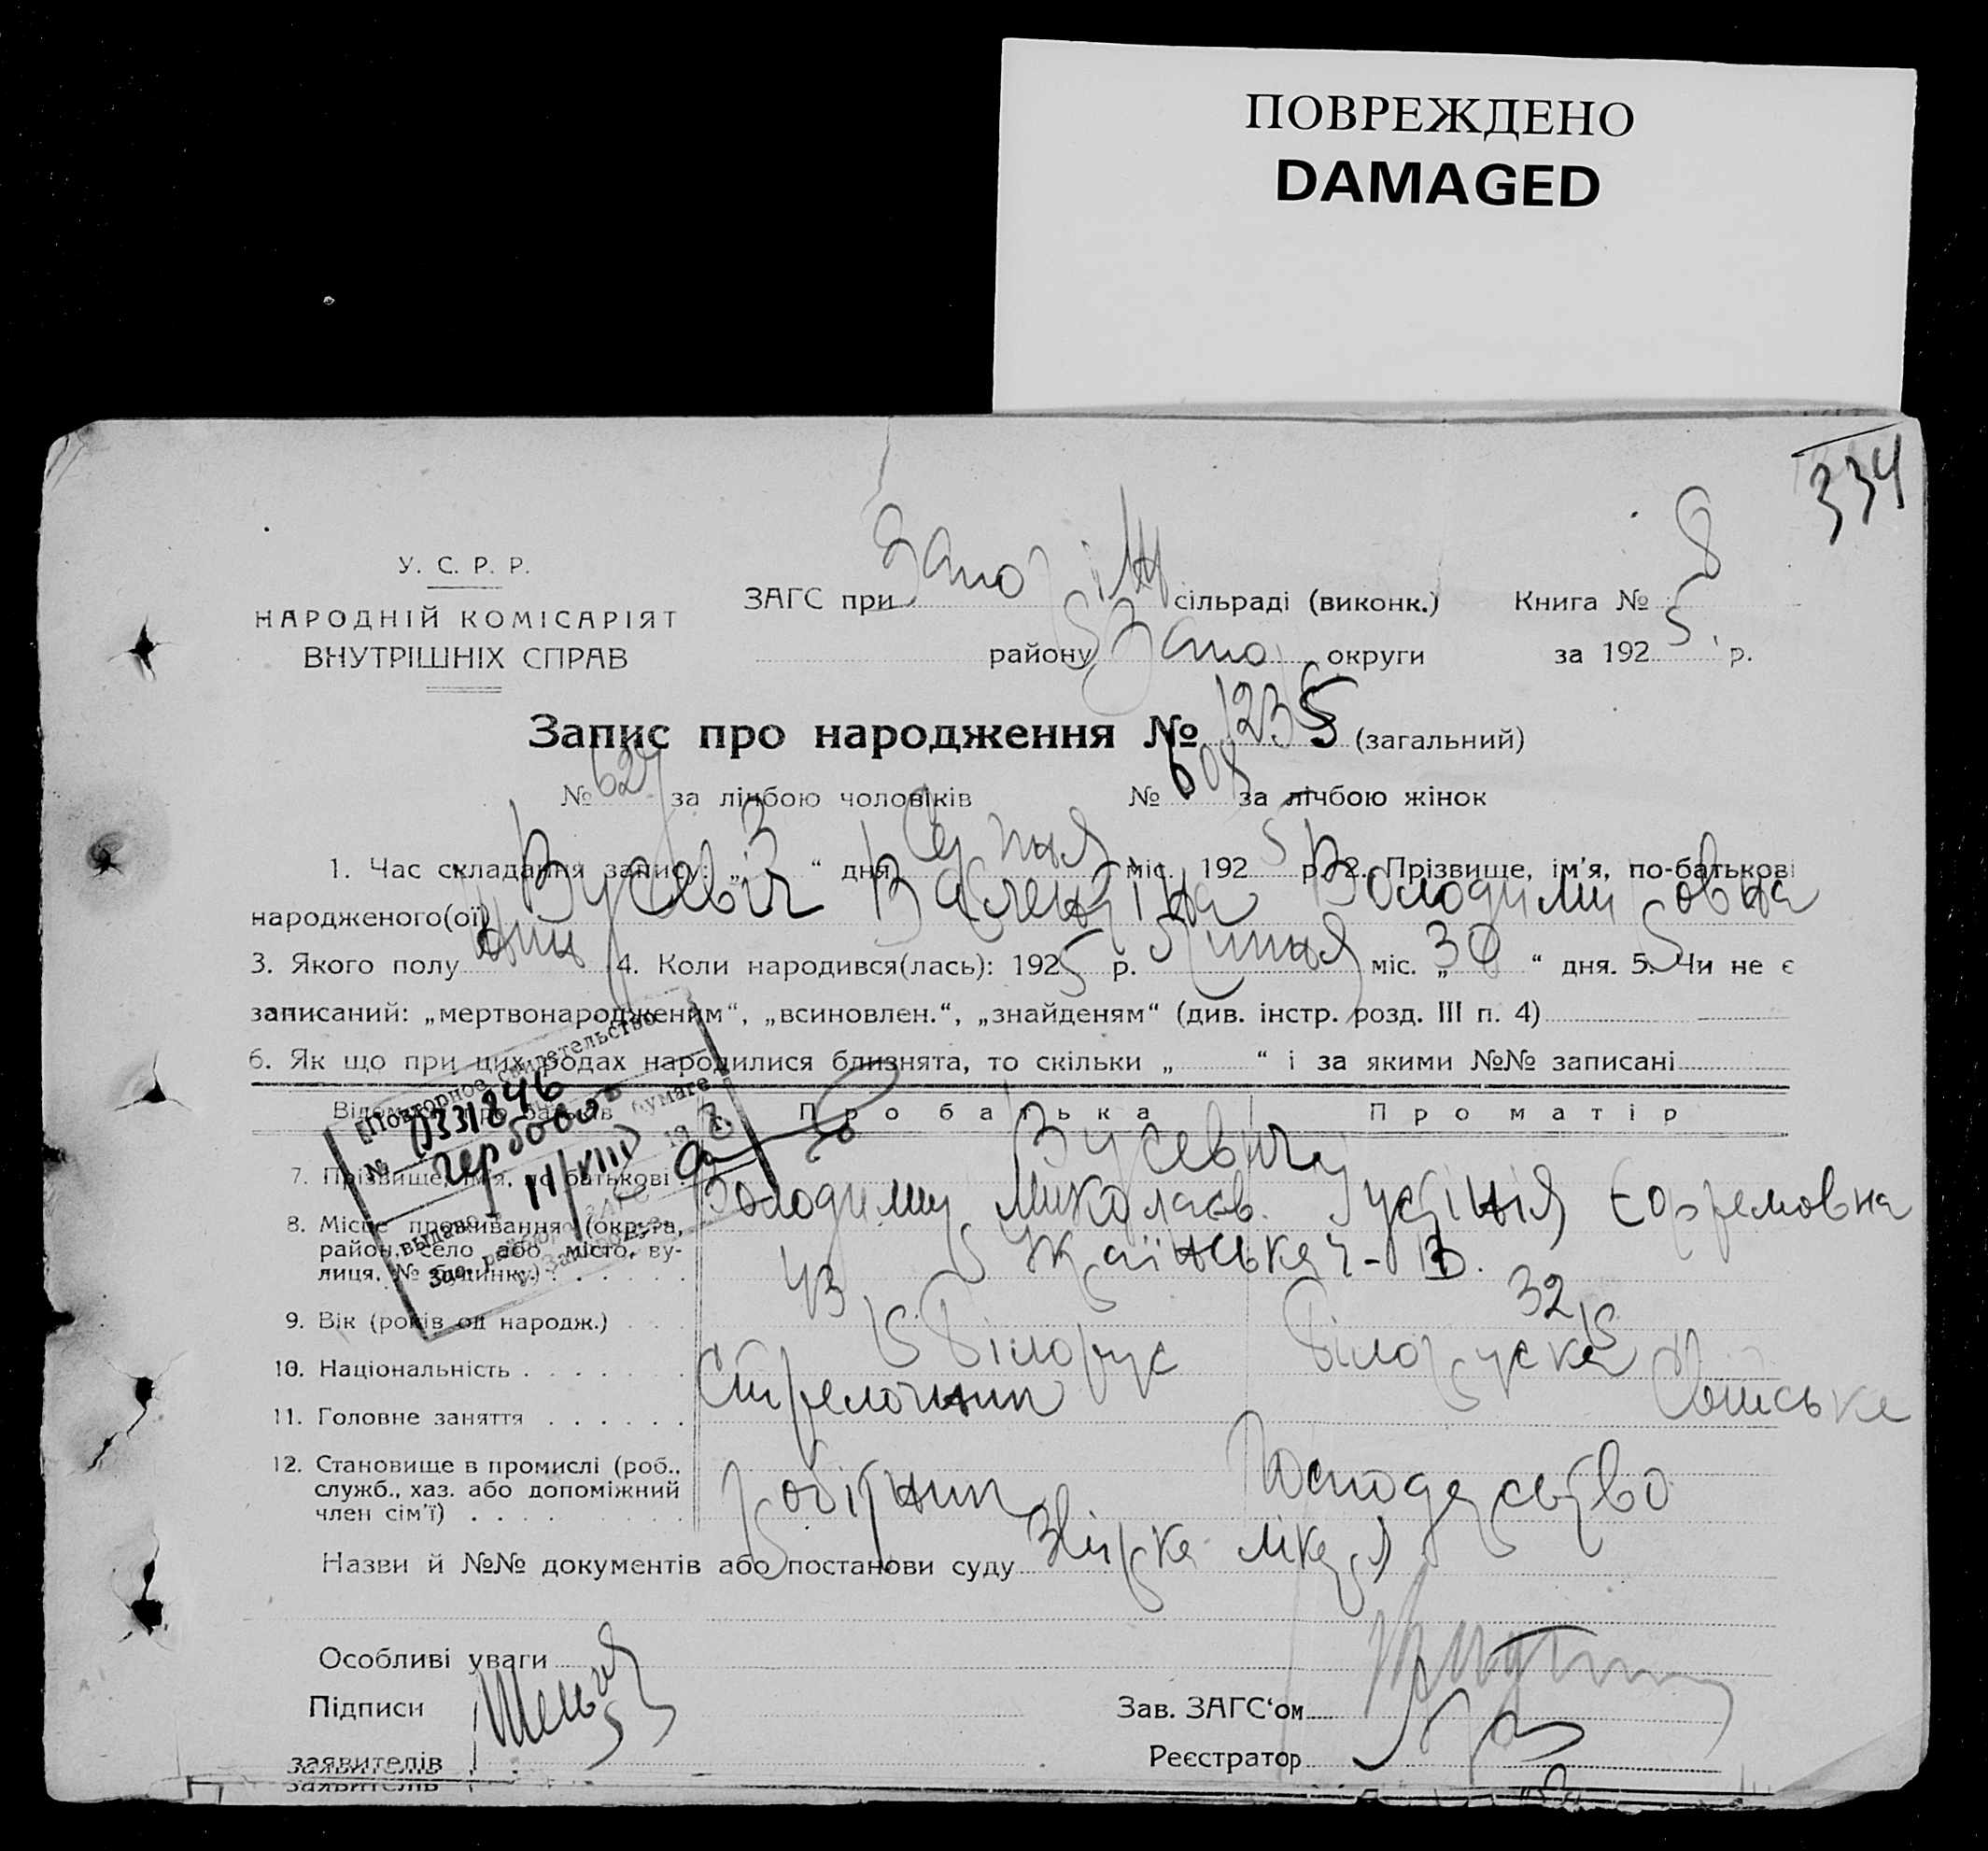 ПОВРЕЖДЕНО
DAMAGED
334
У. С. Р. Р.
НАРОДНІЙ КОМІСАРІЯТ
ВНУТРІШНІХ СПРАВ
ЗАГС при Запоріж сільраді (виконк.) Книга № 8
району Запо округи за 1925 р.
Запис про народження № 1235 (загальний)
№ 627 за лічбою чоловіків № 608 за лічбою жінок
1. Час складання запису: „3“ дня Серпня міс. 1925 р. 2. Прізвище, ім'я, по-батькові
народженого(ої) Вусевіч Валентіна Володимировна
3. Якого полу жін 4. Коли народився(лась): 1925 р. Липня міс. „30“ дня. 5. Чи не є
записаний: „мертвонародженим“, „всиновлен.“, „знайденям“ (див. інстр. розд. III п. 4)
6. Як що при цих родах народилися близнята, то скільки „ “ і за якими №№ записані
Відомости про батьків Про батька Про матір
Повторное свидетельство
№ 0331846
гербовая бумаге
выдано 11/VIII
7. Прізвище, ім'я, по батькові Вусевичи
Володимир Миколаєв. Iустінія Єфремовна
8. Місце проживання (округа,
район, село або місто, ву-
лиця, № будинку) Українська
9. Вік (років од народж.) 43 32
10. Національність Білорус Білоруска
11. Головне заняття Стрелочник Хатське
12. Становище в промислі (роб.,
служб., хаз. або допоміжний
член сім'ї) робітник Господарство
Назви й №№ документів або постанови суду лікаря
Особливі уваги
Підписи
заявителів
Зав. ЗАГС‘ом
Реєстратор